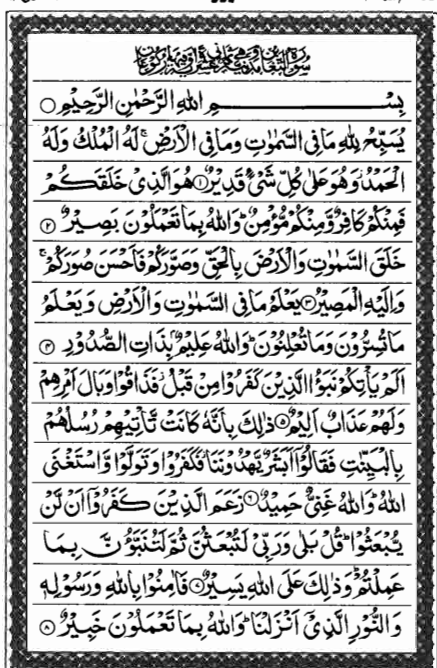 بِسْــــــــمِ اللهِ الرَّحْمٰنِ الرَّحِيْمِ ○
يُسَبِّحُ لِلّٰهِ مَا فِي السَّمٰوٰتِ وَمَا فِي الْاَرْضِ ۚ لَهُ الْمُلْكُ وَلَهُ
الْحَمْدُ ۫ وَهُوَ عَلٰى كُلِّ شَيْءٍ قَدِيْرٌ ۝۱ هُوَ الَّذِيْ خَلَقَكُمْ
فَمِنْكُمْ كَافِرٌ وَّمِنْكُمْ مُّؤْمِنٌ ؕ وَاللهُ بِمَا تَعْمَلُوْنَ بَصِيْرٌ ۝۲
خَلَقَ السَّمٰوٰتِ وَالْاَرْضَ بِالْحَقِّ وَصَوَّرَكُمْ فَاَحْسَنَ صُوَرَكُمْ ۚ
وَاِلَيْهِ الْمَصِيْرُ ۝۳ يَعْلَمُ مَا فِي السَّمٰوٰتِ وَالْاَرْضِ وَيَعْلَمُ
مَا تُسِرُّوْنَ وَمَا تُعْلِنُوْنَ ؕ وَاللهُ عَلِيْمٌۢ بِذَاتِ الصُّدُوْرِ ۝۴
اَلَمْ يَاْتِكُمْ نَبَؤُا الَّذِيْنَ كَفَرُوْا مِنْ قَبْلُ ؗ فَذَاقُوْا وَبَالَ اَمْرِهِمْ
وَلَهُمْ عَذَابٌ اَلِيْمٌ ۝۵ ذٰلِكَ بِاَنَّهٗ كَانَتْ تَّاْتِيْهِمْ رُسُلُهُمْ
بِالْبَيِّنٰتِ فَقَالُوْۤا اَبَشَرٌ يَّهْدُوْنَنَا ؗ فَكَفَرُوْا وَتَوَلَّوْا وَّاسْتَغْنَى
اللهُ ؕ وَاللهُ غَنِيٌّ حَمِيْدٌ ۝۶ زَعَمَ الَّذِيْنَ كَفَرُوْۤا اَنْ لَّنْ
يُّبْعَثُوْا ؕ قُلْ بَلٰى وَرَبِّيْ لَتُبْعَثُنَّ ثُمَّ لَتُنَبَّؤُنَّ بِمَا
عَمِلْتُمْ ؕ وَذٰلِكَ عَلَى اللهِ يَسِيْرٌ ۝۷ فَاٰمِنُوْا بِاللهِ وَرَسُوْلِهٖ
وَالنُّوْرِ الَّذِيْۤ اَنْزَلْنَا ؕ وَاللهُ بِمَا تَعْمَلُوْنَ خَبِيْرٌ ۝۸